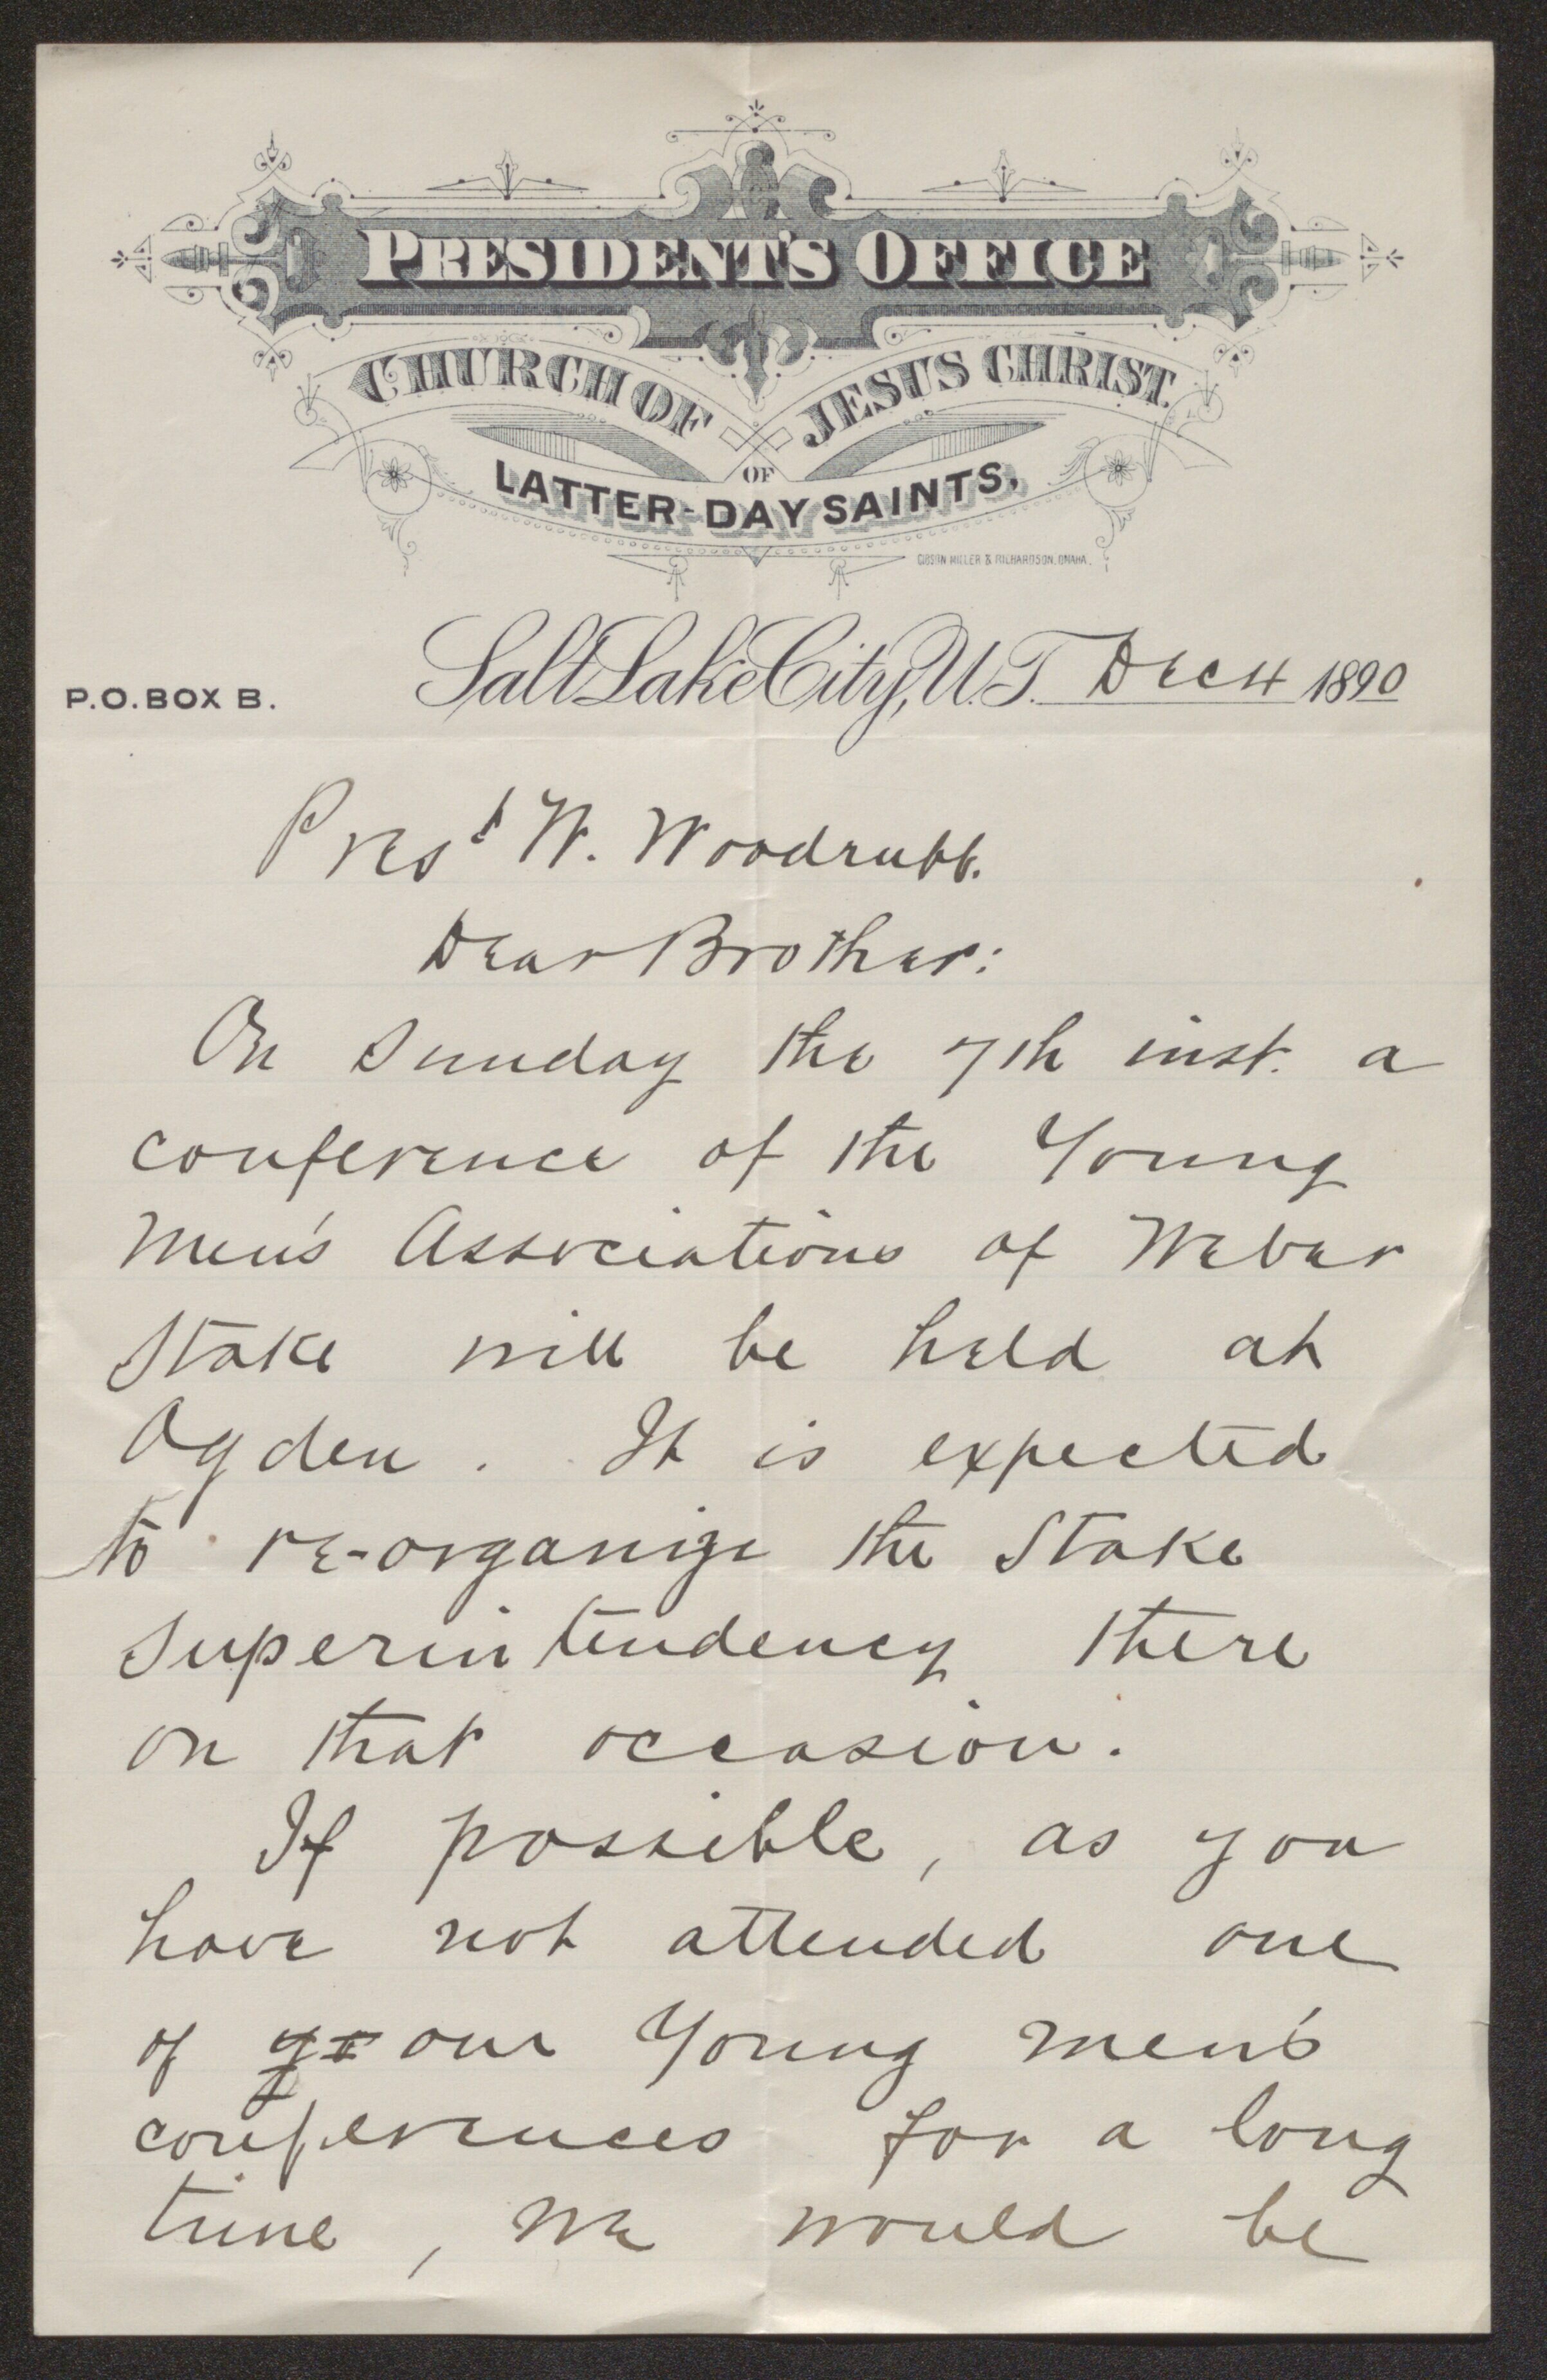 PRESIDENT'S OFFICE
CHURCH OF JESUS CHRIST
OF
LATTER-DAY SAINTS.
GIBSON MILLER & RICHARDSON, OMAHA.
P.O. BOX B. Salt Lake City, U.T. Dec 4 1890
Prest W. Woodruff.
Dear Brother:
On Sunday the 7th inst. a
conference of the Young
Men's Associations of Weber
Stake will be held at
Ogden. It is expected
to re-organize the Stake
Superintendency there
on that occasion.
If possible, as you
have not attended one
of our Young Men's
conferences for a long
time, we would be